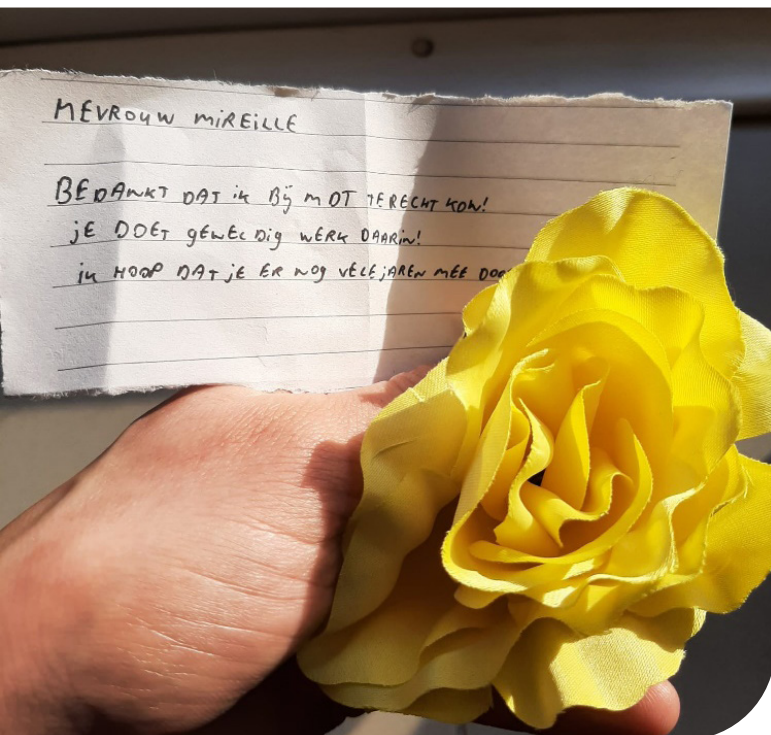 MEVROUW MIREILLE
BEDANKT DAT ik Bij MOT TERECHT KON!
jE DOET gEWELDig WERK DAARin!
ik HOOP DAT jE ER nog VELE jAREN MEE